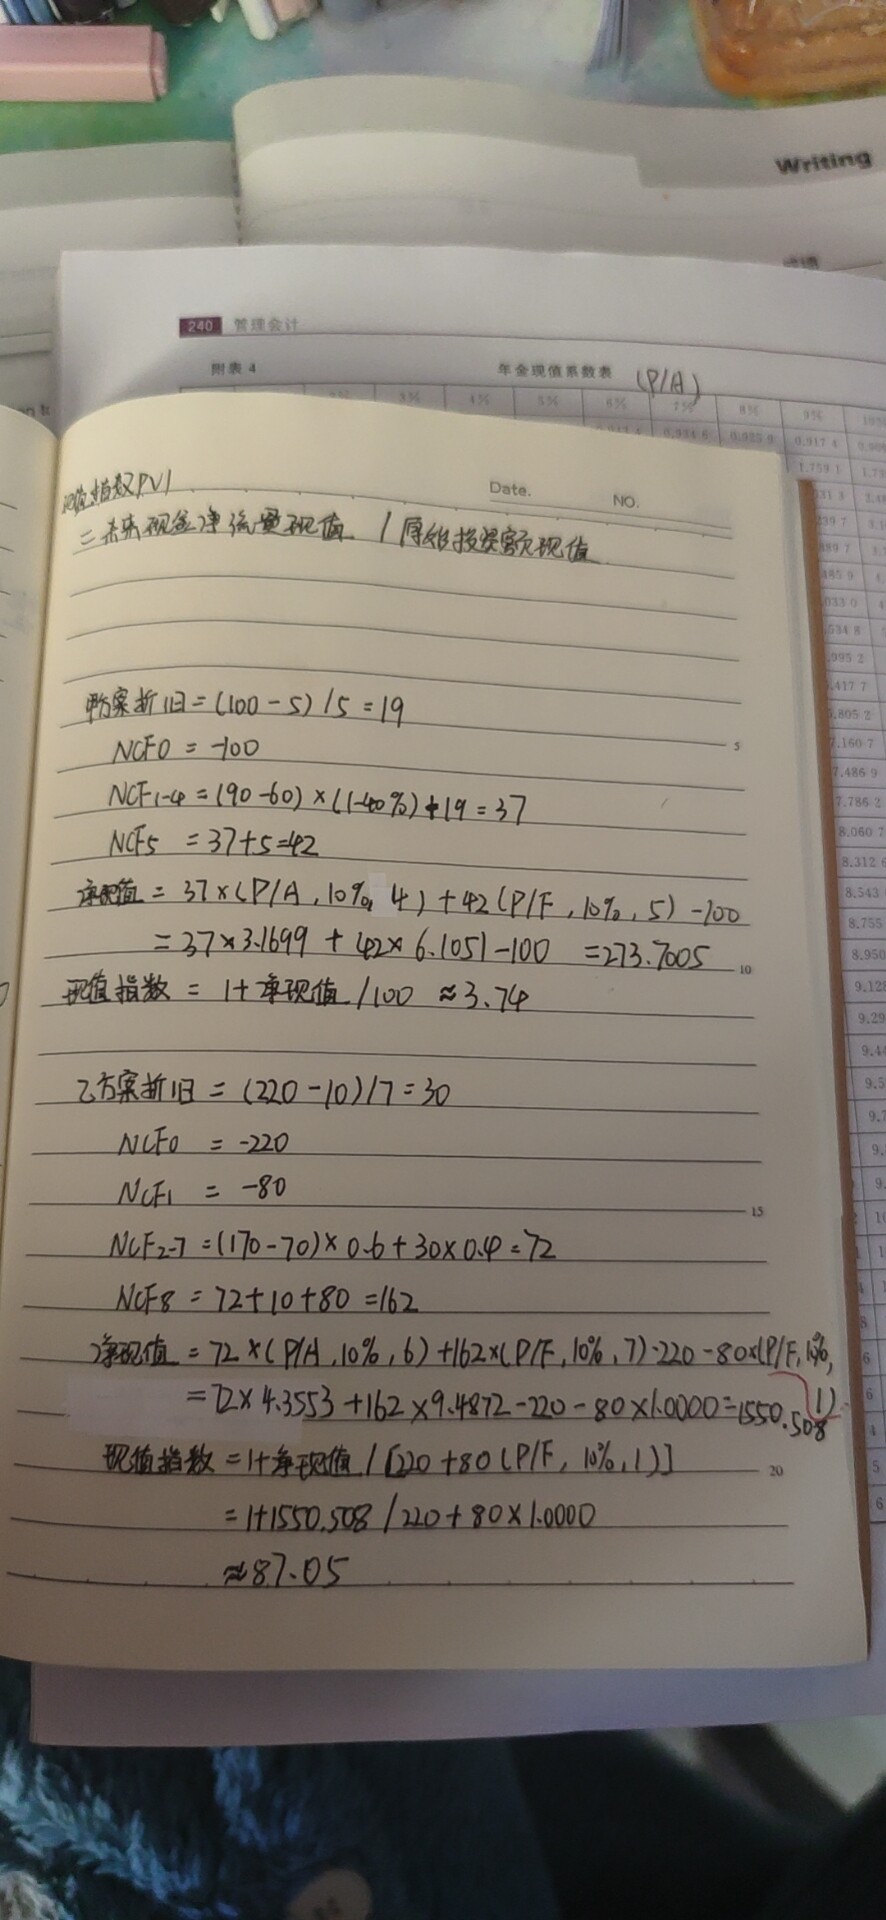 Writing
240 管理会计
附表4 年金现值系数表 (P/A)
3% 4% 5% 6% 7% 8% 9%
0.917 4
1.759 1
现值指数PVI
Date. NO.
=未来现金净流量现值 / 原始投资额现值
甲方案折旧=(100-5)/5=19
NCF0 = -100
5
NCF1-4=(90-60)×(1-40%)+19=37
NCF5 =37+5=42
净现值=37×(P/A,10%,4)+42(P/F,10%,5)-100
=37×3.1699+42×6.1051-100 =273.7005
10
现值指数=1+净现值/100 ≈3.74
乙方案折旧=(220-10)/7=30
NCF0 = -220
NCF1 = -80
15
NCF2-7=(170-70)×0.6+30×0.4=72
NCF8=72+10+80=162
净现值=72×(P/A,10%,6)+162×(P/F,10%,7)-220-80×(P/F,10%,1)
=72×4.3553+162×9.4872-220-80×1.0000=1550.508
现值指数=1+净现值/[220+80(P/F,10%,1)]
20
=1+1550.508/220+80×1.0000
≈87.05
7.160 7
7.486 9
7.786 2
8.060 7
8.312 6
8.543
8.755
8.950
9.128
9.29
9.4
9.5